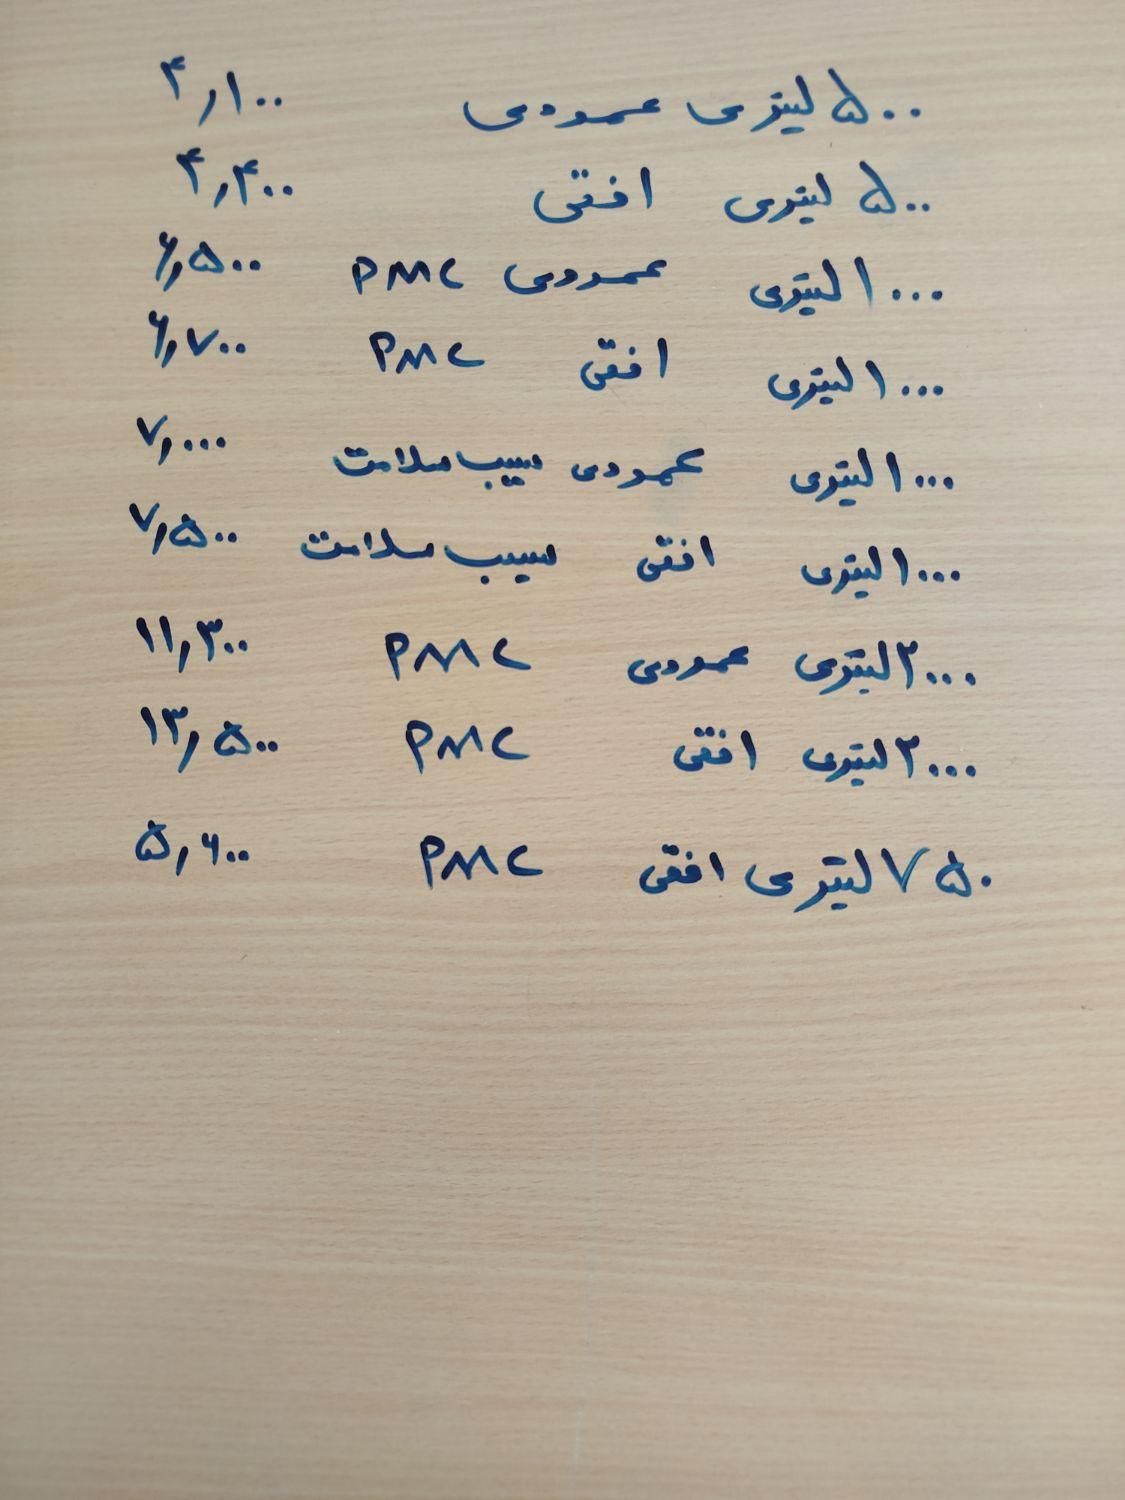 ۵۰۰ لیتری عمودی ۴٫۱۰۰
۵۰۰ لیتری افقی ۴٫۴۰۰
۱۰۰۰ لیتری عمودی PMC ۶٫۵۰۰
۱۰۰۰ لیتری افقی PMC ۶٫۷۰۰
۱۰۰۰ لیتری عمودی سیب سلامت ۷٫۰۰۰
۱۰۰۰ لیتری افقی سیب سلامت ۷٫۵۰۰
۲۰۰۰ لیتری عمودی PMC ۱۱٫۳۰۰
۲۰۰۰ لیتری افقی PMC ۱۳٫۵۰۰
۷۵۰ لیتری افقی PMC ۵٫۶۰۰